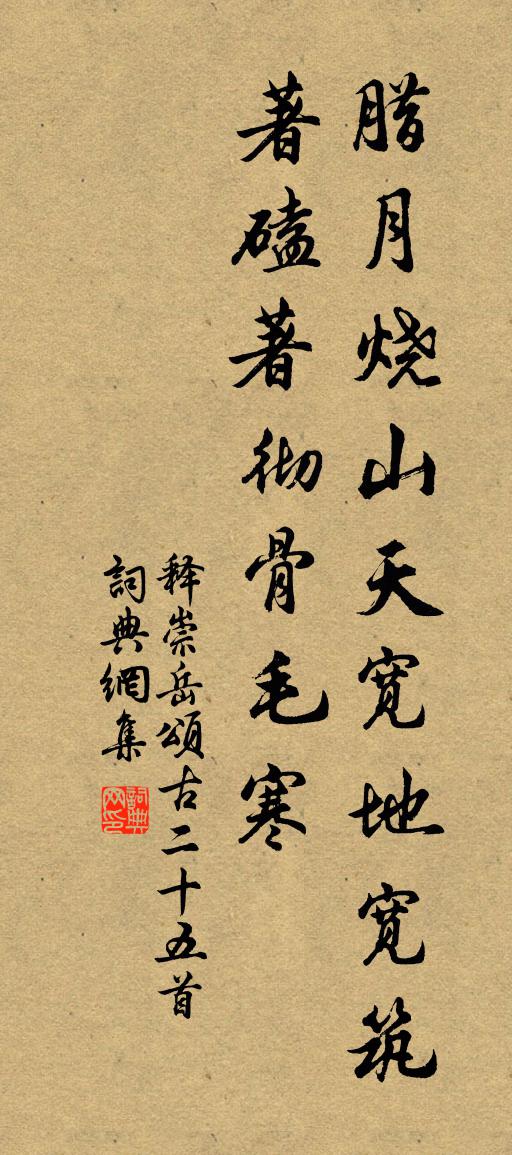 腊月烧山天宽地宽筑
著磕著彻骨毛寒
释崇岳頌古二十五首
詞典網集
詞典网印